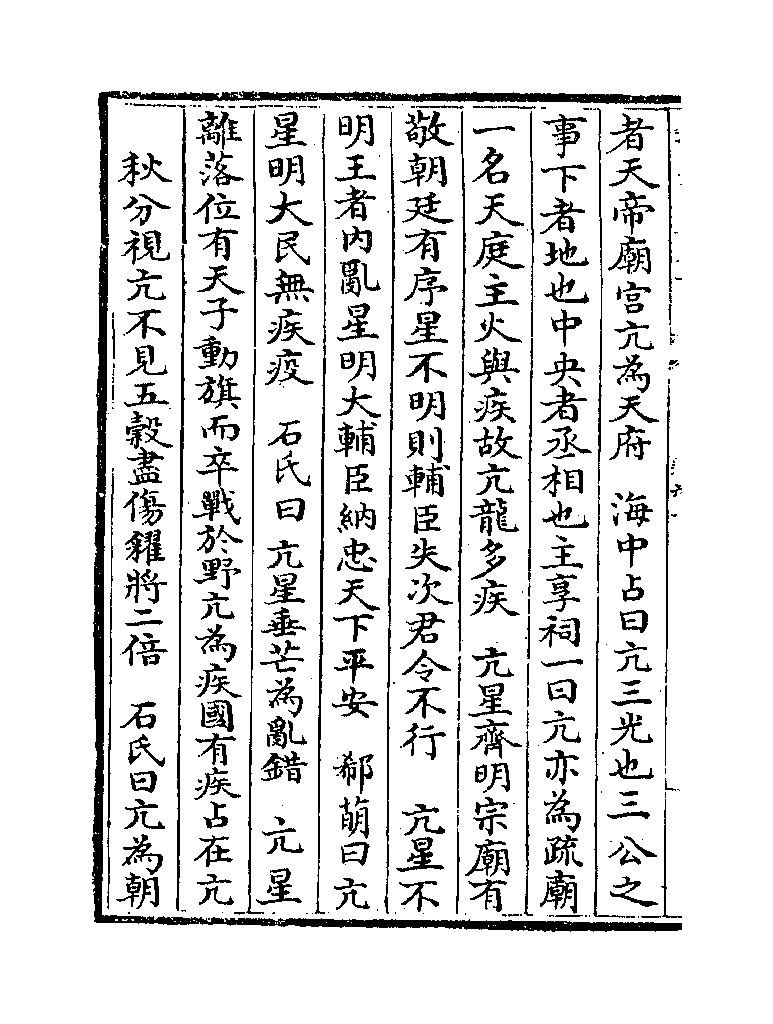 者天帝廟宫亢為天府　海中占曰亢三光也三公之
事下者地也中央者丞相也主享祠一曰亢亦為疏廟
一名天庭主火與疾故亢龍多疾　亢星齊明宗廟有
敬朝廷有序星不明則輔臣失次君令不行　亢星不
明王者内亂星明大輔臣納忠天下平安　郗萌曰亢
星明大民無疾疫　石氏曰亢星垂芒為亂錯　亢星
離落位有天子動旗而卒戰於野亢為疾國有疾占在亢
秋分視亢不見五穀盡傷糴將二倍　石氏曰亢為朝